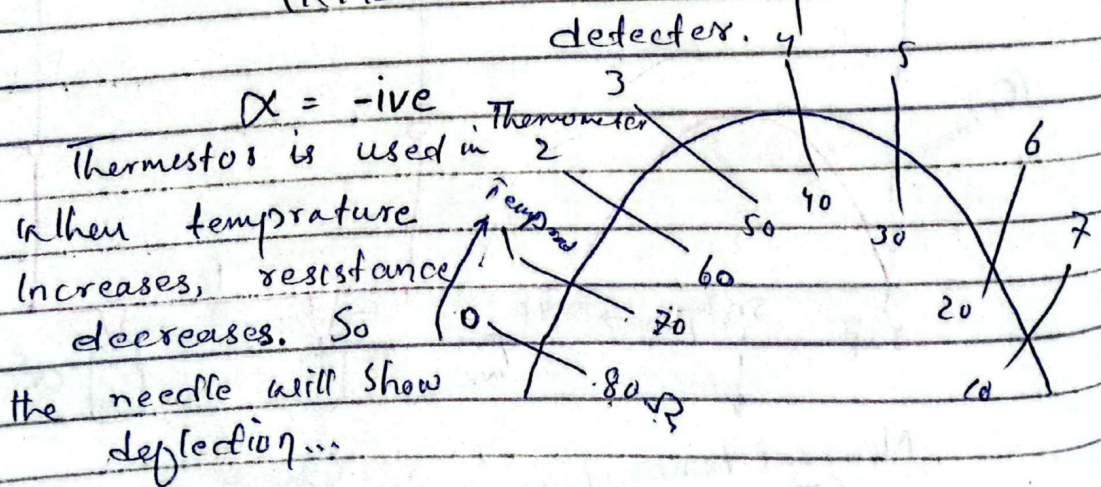 detecter.
α = -ive
Thermometer
Thermestor is used in
When temprature
Increases, resistance
decreases. So
the needle will show
deflection...
0 1 2 3 4 5 6 7
80 70 60 50 40 30 20 10